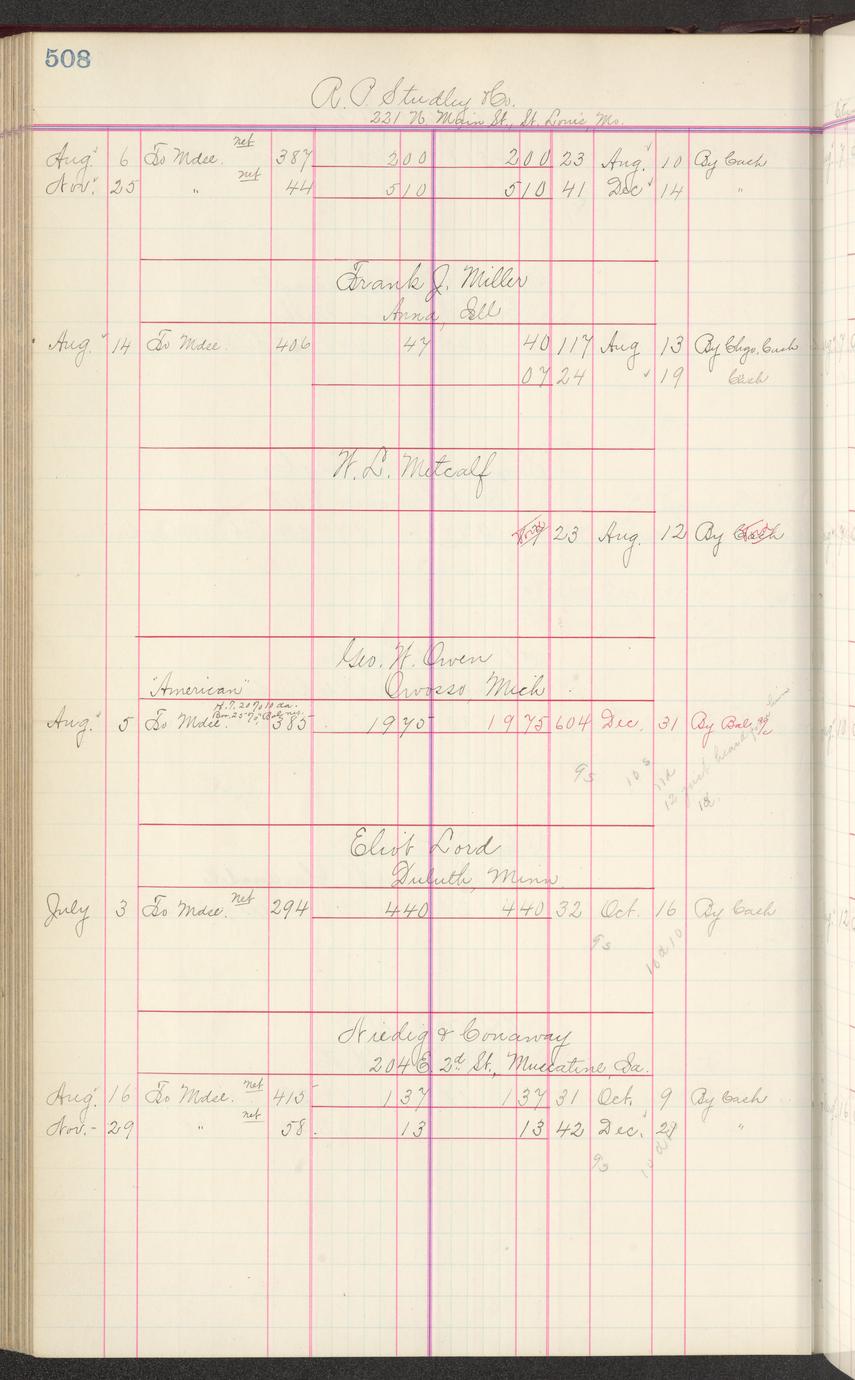 508
R. P. Studley & Co.
221 N. Main St., St. Louis, Mo.
Aug. 6 To Mdse. net 387 200 200 23 Aug. 10 By Cash
Nov. 25 " net 44 510 510 41 Dec 14 "
Frank J. Miller
Anna, Ill
Aug. 14 To Mdse. 406 47 40 117 Aug 13 By Chgo. Cash
07 24 " 19 Cash
W. L. Metcalf
23 Aug. 12 By Cash
Geo. W. Owen
"American" Owosso, Mich
H.T. 20 % 10 da.
Aug. 5 To Mdse. 385 1975 1975 604 Dec. 31 By Bal.
9s 10s
12 just heard
12.
Eliot Lord
Duluth, Minn
July 3 To Mdse. net 294 440 440 32 Oct. 16 By Cash
9s 10 d 10
Niedig & Conaway
204 E. 2d St., Muscatine Ia.
Aug. 16 To Mdse. net 415 137 137 31 Oct. 9 By Cash
Nov. - 29 " net 58 13 13 42 Dec. "
9s